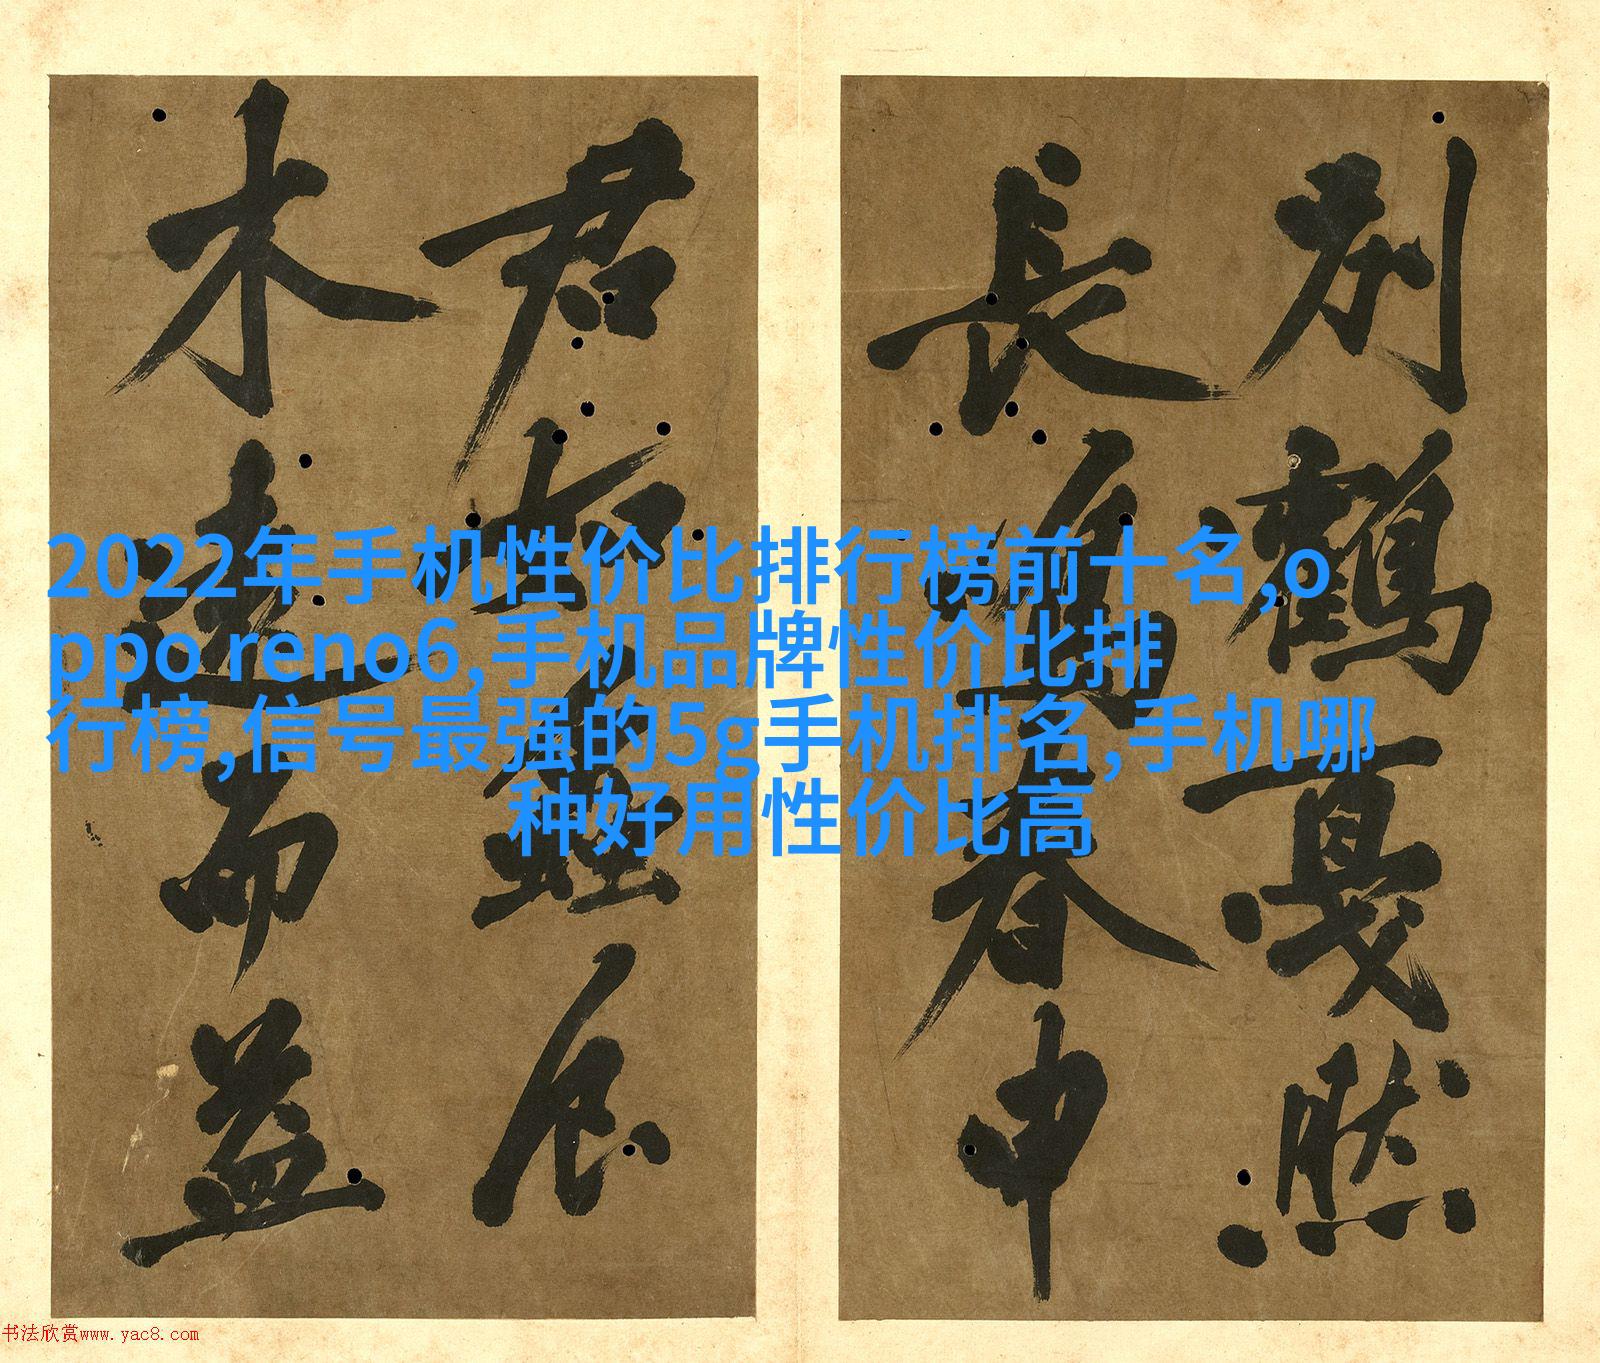 2022年手机性价比排行榜前十名,o
ppo reno6,手机品牌性价比排
行榜,信号最强的5g手机排名,手机哪
种好用性价比高
别鶴戛然
長鳴春申
君
木遠而益
书法欣赏www.yac8.com